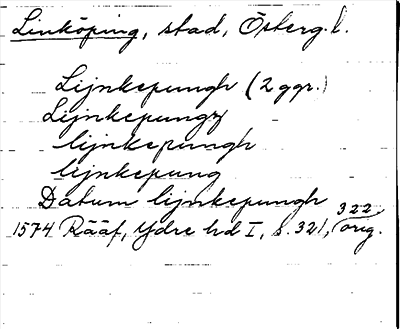 Linköping, stad, Österg.l.
Lijnkepungh (2 ggr.)
Lijnkepungz
lijnkepungh
lijnkepung
Datum lijnkepungh
1574 Rääf, Ydre hd I, s. 321, 322, orig.